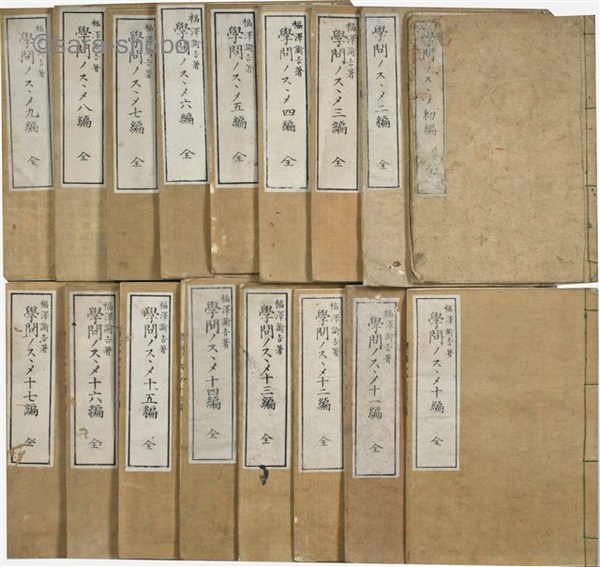 ©sara-shobo
學問ノスヽメ初編 全
學問ノスヽメ二編 全
福澤諭吉著
學問ノスヽメ三編 全
福澤諭吉著
學問ノスヽメ四編 全
福澤諭吉著
學問ノスヽメ五編 全
福澤諭吉著
學問ノスヽメ六編 全
福澤諭吉著
學問ノスヽメ七編 全
福澤諭吉著
學問ノスヽメ八編 全
福澤諭吉著
學問ノスヽメ九編 全
福澤諭吉著
學問ノスヽメ十編 全
福澤諭吉著
學問ノスヽメ十一編 全
福澤諭吉著
學問ノスヽメ十二編 全
福澤諭吉著
學問ノスヽメ十三編 全
福澤諭吉著
學問ノスヽメ十四編 全
福澤諭吉著
學問ノスヽメ十五編 全
福澤諭吉著
學問ノスヽメ十六編 全
福澤諭吉著
學問ノスヽメ十七編 全